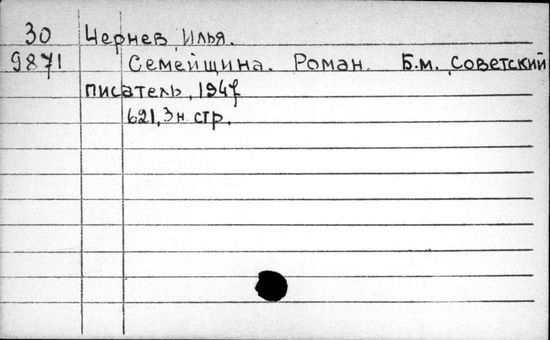 30 Чернев, Илья.
9871 Семейщина. Роман. Б.м. Советский
писатель, 1947
621, 3 н. стр.